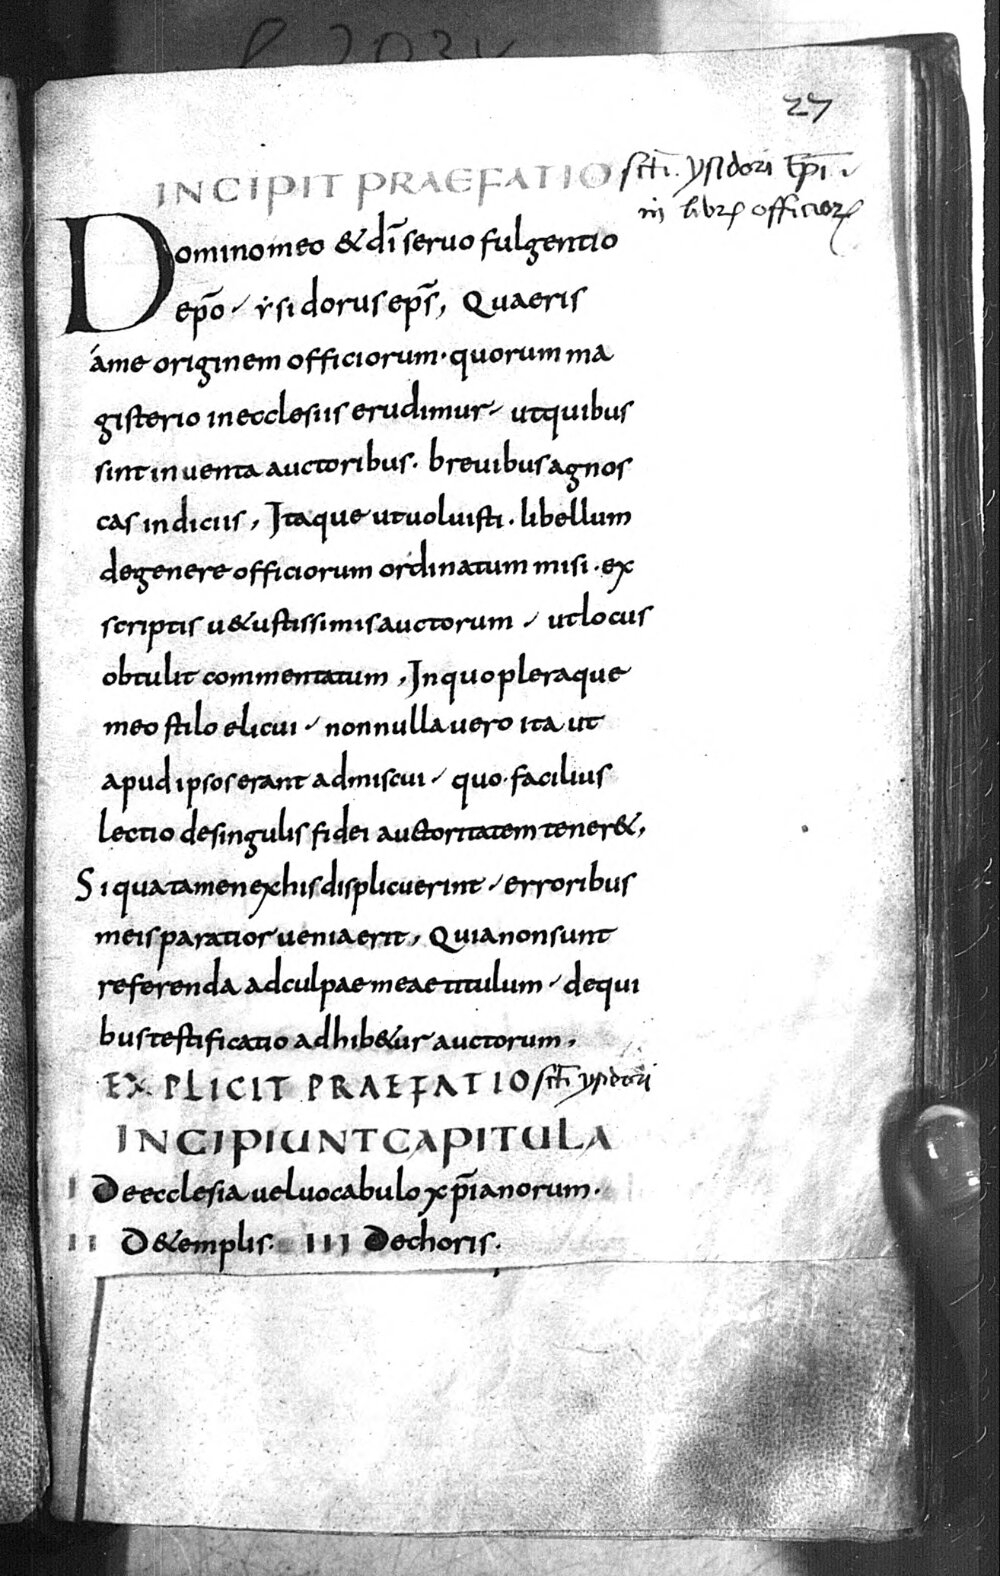 27
INCIPIT PRAEFATIO sc̄ti. ysidori Ep̄i
in libr̄ officior̄
Domino meo & dī seruo fulgentio
ep̄o ysidorus ep̄s, Quaeris
áme originem officiorum · quorum ma
gisterio in ecclesiis erudimur utquibus
sint inuenta auctoribus. breuibus agnos
cas indiciis, Itaque ut uoluisti. libellum
de genere officiorum ordinatum misi · ex
scriptis u&ustissimis auctorum ut locus
obtulit commentatum, In quo pleraque
meo stilo elicui nonnulla uero ita ut
apud ipsos erant admiscui quo · facilius
lectio de singulis fidei auctoritatem tener&,
Si qua tamen ex his displicuerint erroribus
meis paratior uenia erit, Quia non sunt
referenda ad culpae meae titulum de qui
bus testificatio adhib&ur auctorum,
EXPLICIT PRAEFATIO sc̄ti ysidori
INCIPIUNT CAPITULA
I De ecclesia uel uocabulo xp̄ianorum.
II D&emplis. III De choris.